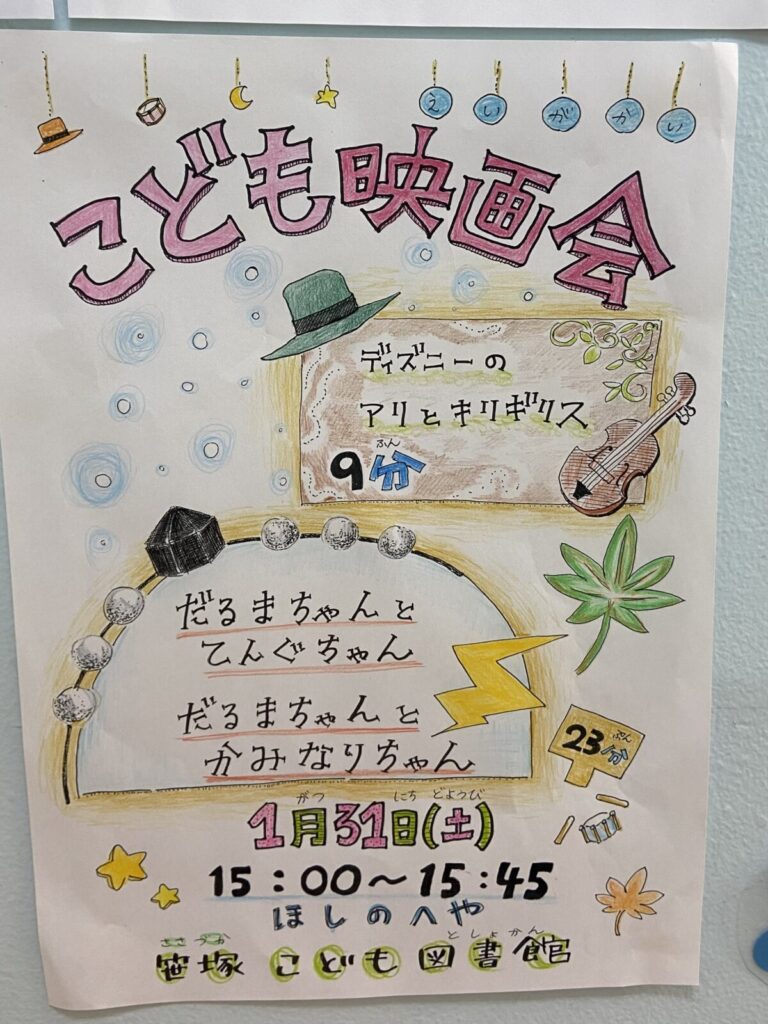 えいがかい
こども映画会
ディズニーの
アリとキリギリス
ふん
9分
だるまちゃんと
てんぐちゃん
だるまちゃんと
かみなりちゃん
ぷん
23分
がつ にち どようび
1月31日(土)
15:00～15:45
ほしのへや
ささづか としょかん
笹塚 こども 図書館